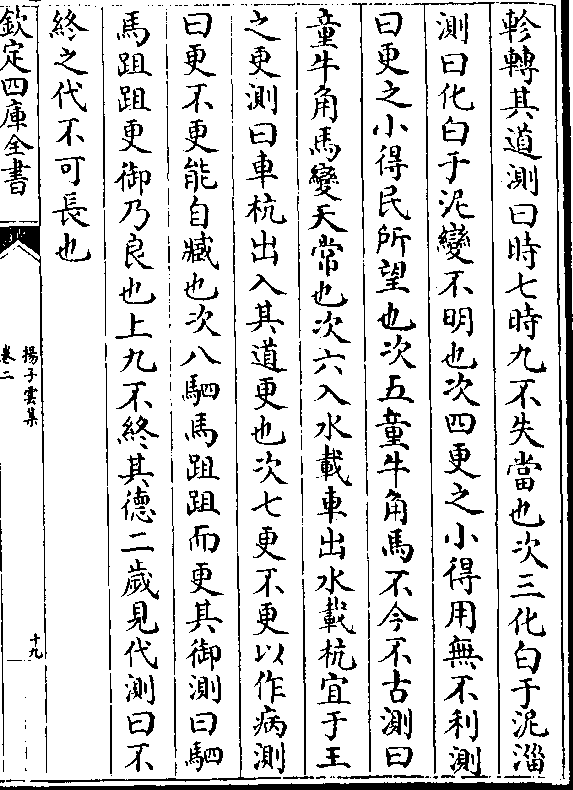 軫轉其道測曰時七時九不失當也次三化白于泥淄
測曰化白于泥變不明也次四更之小得用無不利測
曰更之小得民所望也次五童牛角馬不今不古測曰
童牛角馬變天常也次六入水載車出水載杭宜于王
之更測曰車杭出入其道更也次七更不更以作病測
曰更不更能自臧也次八駟馬跙跙而更其御測曰駟
馬跙跙更御乃良也上九不終其德二歲見代測曰不
終之代不可長也
欽定四庫全書
揚子雲集
卷二
十九